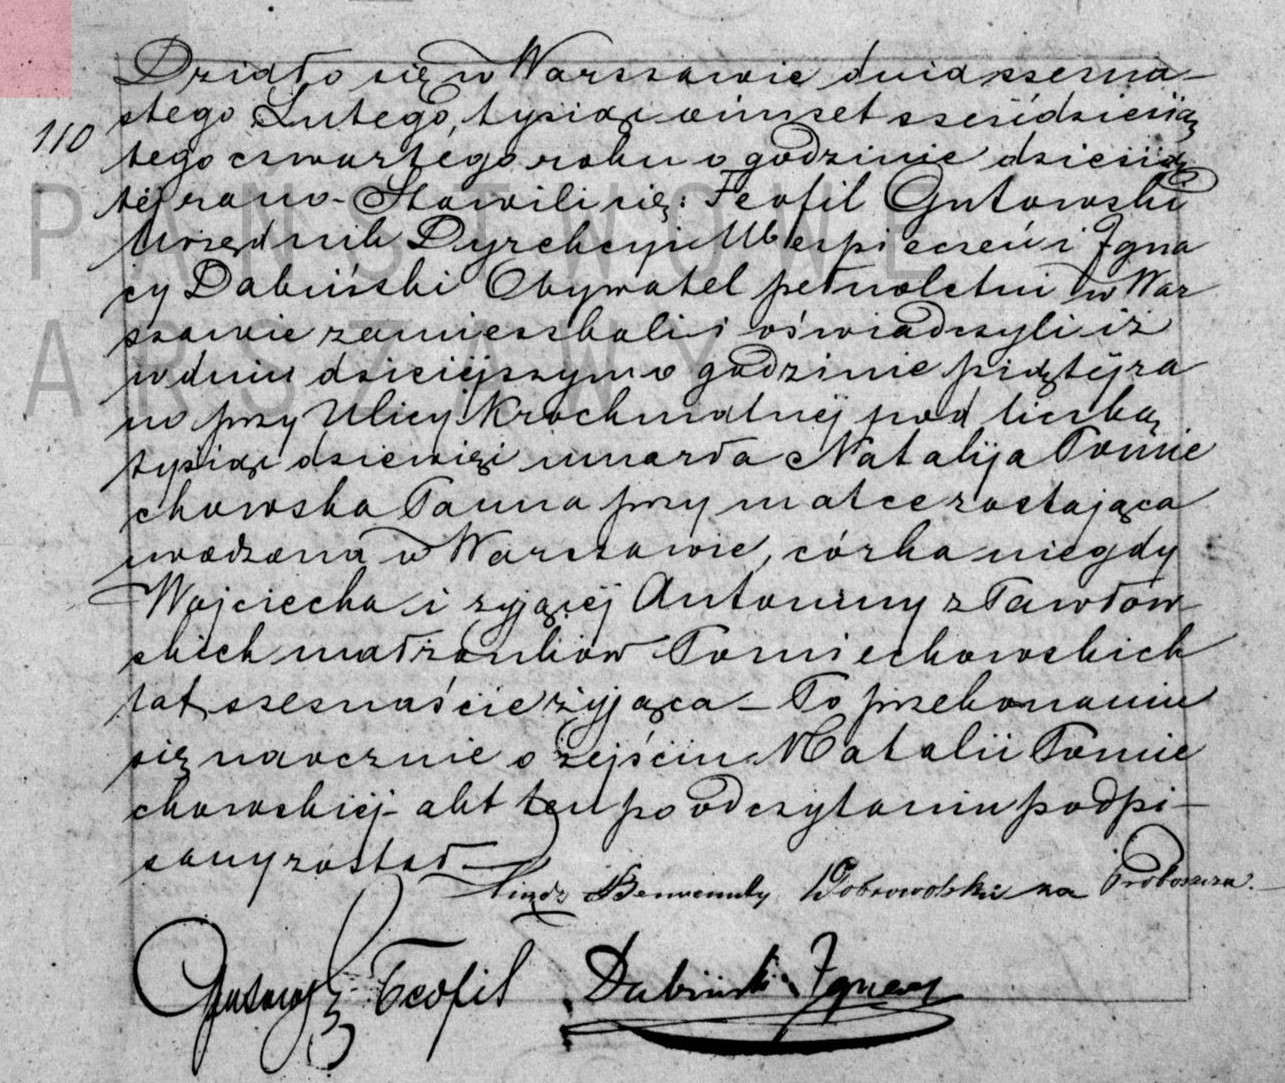 110
Działo się w Warszawie dnia szesna-
stego Lutego, tysiąc ośmset sześćdziesią
tego czwartego roku o godzinie dziesią
téj rano - Stawili się: Teofil Gutowski
Urzędnik Dyrekcyi Ubezpieczeń i Igna
cy Dabiński Obywatel pełnoletni w War
szawie zamieszkali i oświadczyli iż
w dniu dzisiéjszym o godzinie piątéj ra
no przy Ulicy Krochmalnéj pod liczbą
tysiąc dziewięć umarła Natalija Pomie
chowska Panna przy matce zostająca
urodzona w Warszawie, córka niegdy
Wojciecha i żyjącéj Antoniny z Pawłow
skich małżonków Pomiechowskich
lat szesnaście żyjąca - Po przekonaniu
się naocznie o zejściu Natalii Pomie
chowskiéj - akt ten po odczytaniu podpi-
sany został -
Xiądz Benvenuty Dobrowolski za Proboszcza.
Gutowski Teofil Dabiński Ignacy
PAŃSTWOWE
ARSZAWY